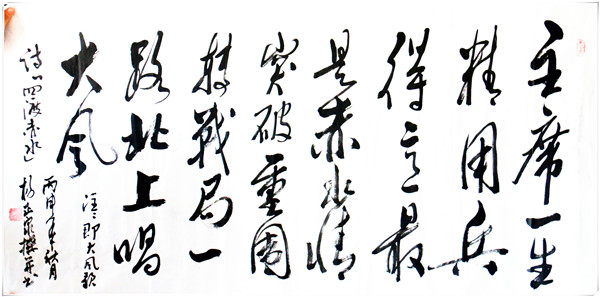 主席一生
精用兵
得意最
是赤水情
突破重围
战局一
路北上唱
大风
注:即大风歌
诗《四渡赤水》
丙申年秋月
杨 撰并书